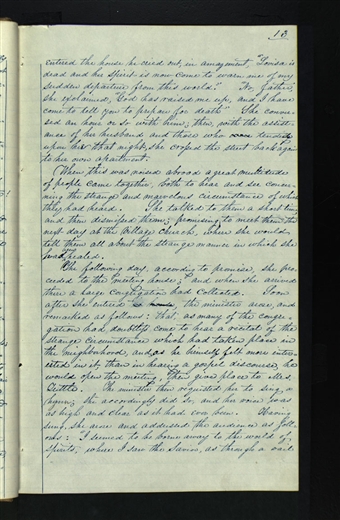 13.
entered the house he cried out, in amazement, "Lovisa is
dead and her spirit is now come to warn me of my
sudden departure from this world." "No, father,"
she exclaimed, "God has raised me up, and I have
come to tell you to prepare for death" She conver-
sed an hour or so with him; then, with the assist-
ance of her husband and those who were tending
upon him that night, she crossed the street back again
to her own apartment.
When this was noised abroad a great multitude
of people came together, both to hear and see concer-
ning the strange and marvelous circumstance of which
they had heard. She talked to them a short time
and then dismissed them; promising to meet them the
next day at the village church, where she would
tell them all about the strange manner in which she
was healed.
The following day, according to promise, she pro-
ceeded to the meeting house; and when she arrived
there a large congregation had collected. Soon
after she entered the minister arose, and
remarked as follows: that, as many of the congre-
gation had doubtless come to hear a recital of the
strange circumstance which had taken place in
the neighborhood, and as he himself felt more inter-
ested in it, than in hearing a gospel discourse, he
would open the meeting, then give place to Mrs.
Tuttle. The minister then requested her to sing a
hymn; she accordingly did so, and her voice was
as high and clear as it had ever been. Having
sung, she arose and addressed the audience as foll-
ows: I seemed to be borne away to the world of
spirits, where I saw the Savior, as through a veil